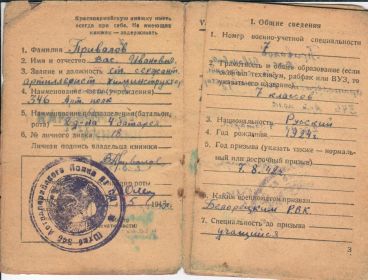 Красноармейскую книжку иметь
всегда при себе. Не имеющих
книжек — задерживать.
1. Фамилия Привалов
2. Имя и отчество Вас. Иванович
3. Звание и должность ст. сержант
артиллерист
4. Наименование части (учреждения)
346 Арт. полк
5. Наименование подразделения (батальон,
рота) 4 батарея
6. № личного знака
Личная подпись владельца книжки
I. Общие сведения
1. Номер военно-учетной специальности
2. Грамотность и общее образование (если
техникум, рабфак или ВУЗ, то
7 классов
3. Национальность Русский
4. Год рождения 1924 г.
5. Год призыва (указать также — нормаль-
ный или досрочный призыв)
7.8.42 г.
6. Каким военкоматом призван
Белорецким РВК
7. Специальность до призыва
учащийся
3